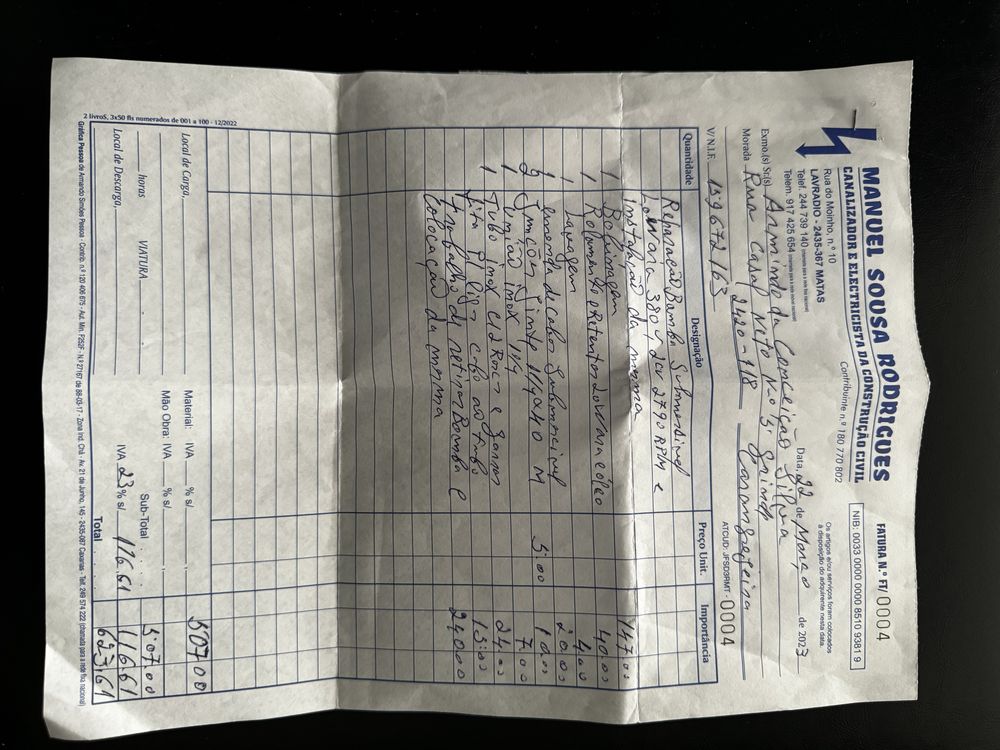 MANUEL SOUSA RODRIGUES
CANALIZADOR E ELECTRICISTA DA CONSTRUÇÃO CIVIL
Contribuinte n.º 180 770 802
Rua do Moinho, n.º 10
LAVRADIO - 2435-367 MATAS
Telef. 244 739 140 (chamada para a rede fixa nacional)
Telem. 917 425 654 (chamada para a rede móvel nacional)
FATURA N.º FT/ 0004
NIB: 0033 0000 0000 8510 9381 9
Os artigos e/ou serviços foram colocados
à disposição do adquirente nesta data.
Data, 22 de Março de 2023
Exmo.(s) Sr.(s) Armindo da Conceição Silva
Morada Rua Casal Neto Nº 3
2420-118 Caranguejeira
V/ N.I.F. 159672163
ATCUD: JFSD3RMT - 0004
Quantidade Designação Preço Unit. Importância
Reparação Bomba Submersivel
Lowara 380V 2CV 2790 RPM e
instalação da mesma
1 Bobinagem 147.00
1 Rolamento e Retentor Lowara e óleo 40.00
Lavagem 4.00
1 emenda de cabo Submersivel 20.00
2 5.00 10.00
1 União inox 1 1/4 7.00
1 Tubo inox c/2 Roscas 24.00
Fita 15.00
Trabalho de retirar Bomba e 240.00
colocação da mesma
507.00
Local de Carga,
horas VIATURA
Local de Descarga,
Material: IVA % s/
Mão Obra: IVA % s/
Sub-Total 507.00
IVA 23% s/ 116.61 116.61
Total 623,61
2 livroS, 3x50 fls numerados de 001 a 100 - 12/2022
Gráfica Pessoa de Armando Simões Pessoa - Contrib. n.º 120 406 675 - Aut. Min. P252F - N.º 27167 de 88-03-17 - Zona Ind. Chã - Av. 21 de Junho, 145 - 2435-087 Caxarias - Telf. 249 574 222 (chamada para a rede fixa nacional)